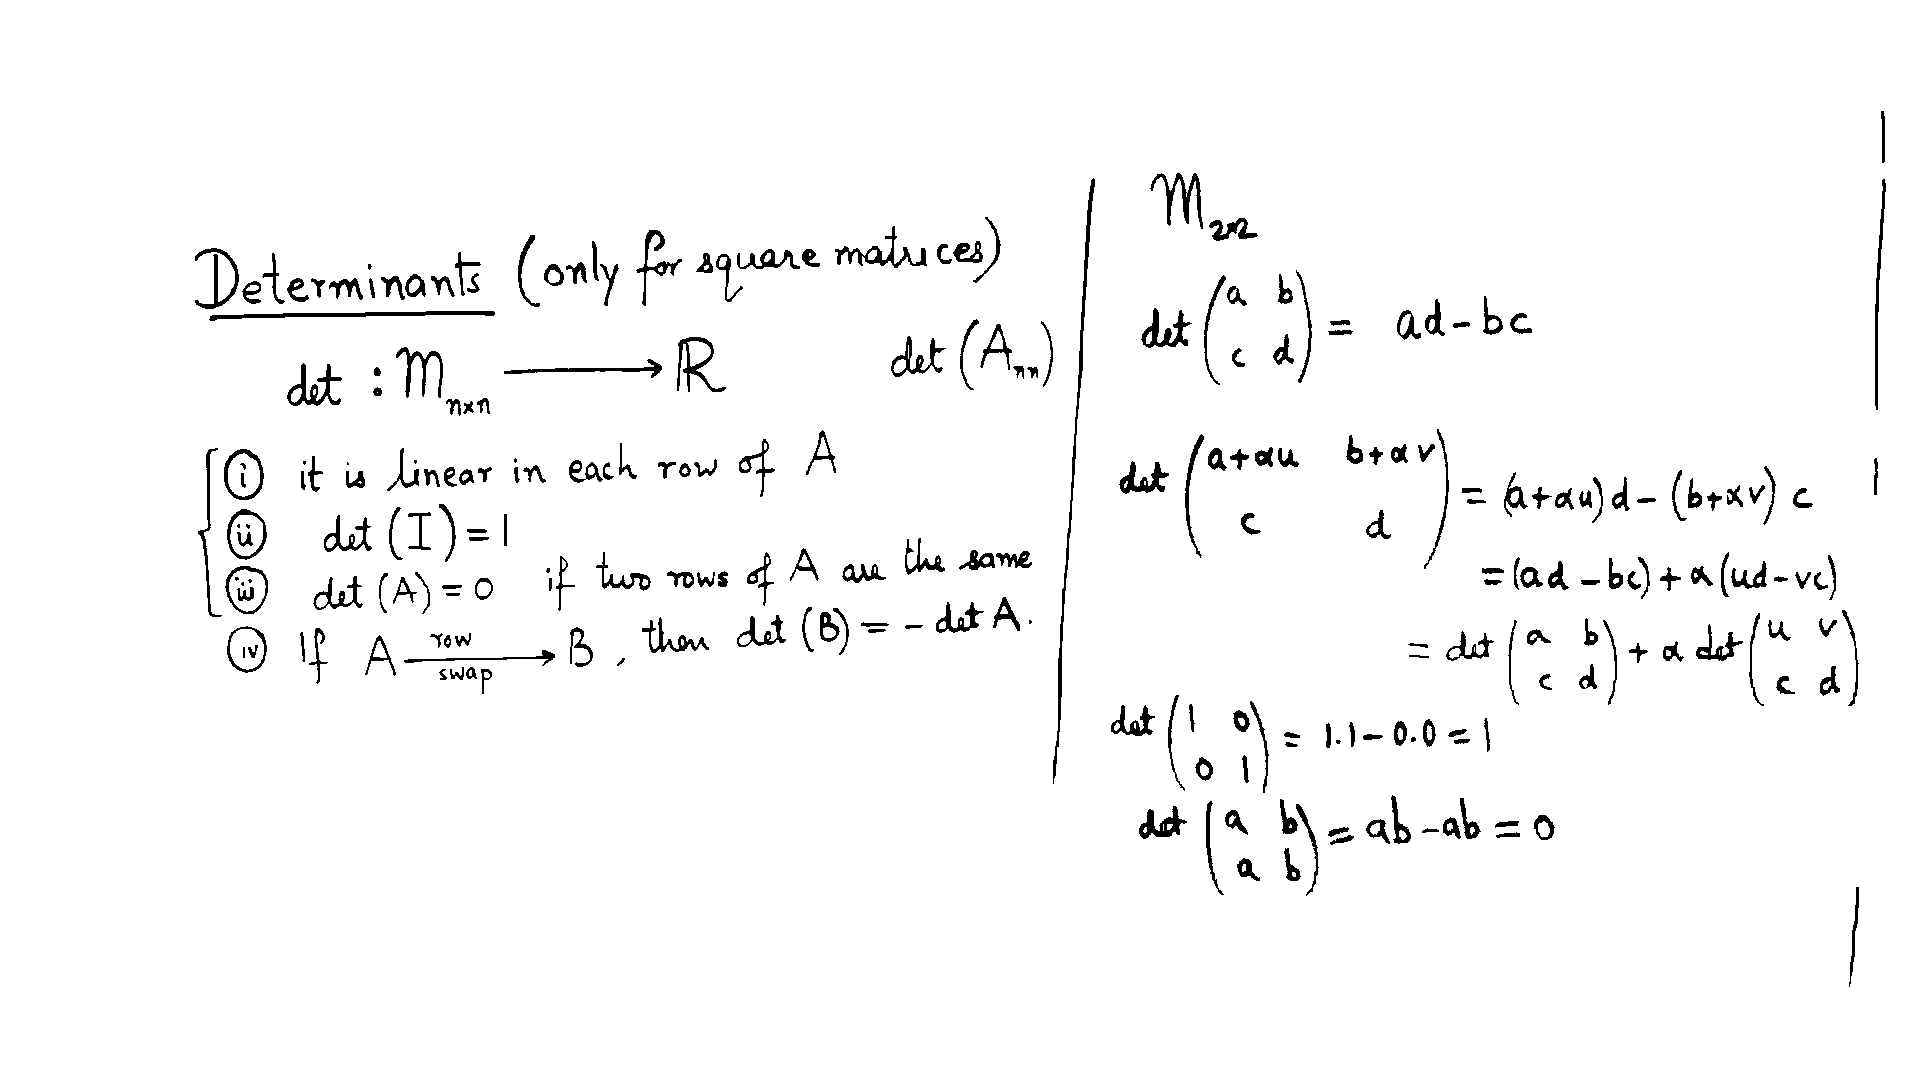 Determinants (only for square matrices)
det : M_{n×n} ⟶ ℝ det (A_{nn})
(i) it is linear in each row of A
(ii) det (I) = 1
(iii) det (A) = 0 if two rows of A are the same
(iv) If A \xrightarrow[swap]{row} B, then det (B) = - det A.
M_{2×2}
det \begin{pmatrix} a & b \\ c & d \end{pmatrix} = ad - bc
det \begin{pmatrix} a+αu & b+αv \\ c & d \end{pmatrix} = (a+αu) d - (b+αv) c
= (ad - bc) + α (ud - vc)
= det \begin{pmatrix} a & b \\ c & d \end{pmatrix} + α det \begin{pmatrix} u & v \\ c & d \end{pmatrix}
det \begin{pmatrix} 1 & 0 \\ 0 & 1 \end{pmatrix} = 1.1 - 0.0 = 1
det \begin{pmatrix} a & b \\ a & b \end{pmatrix} = ab - ab = 0